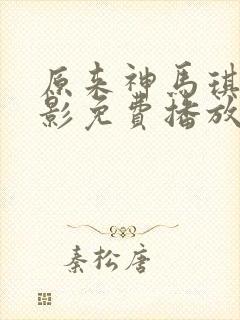 原来神馬琪
影免費播放
秦松唐